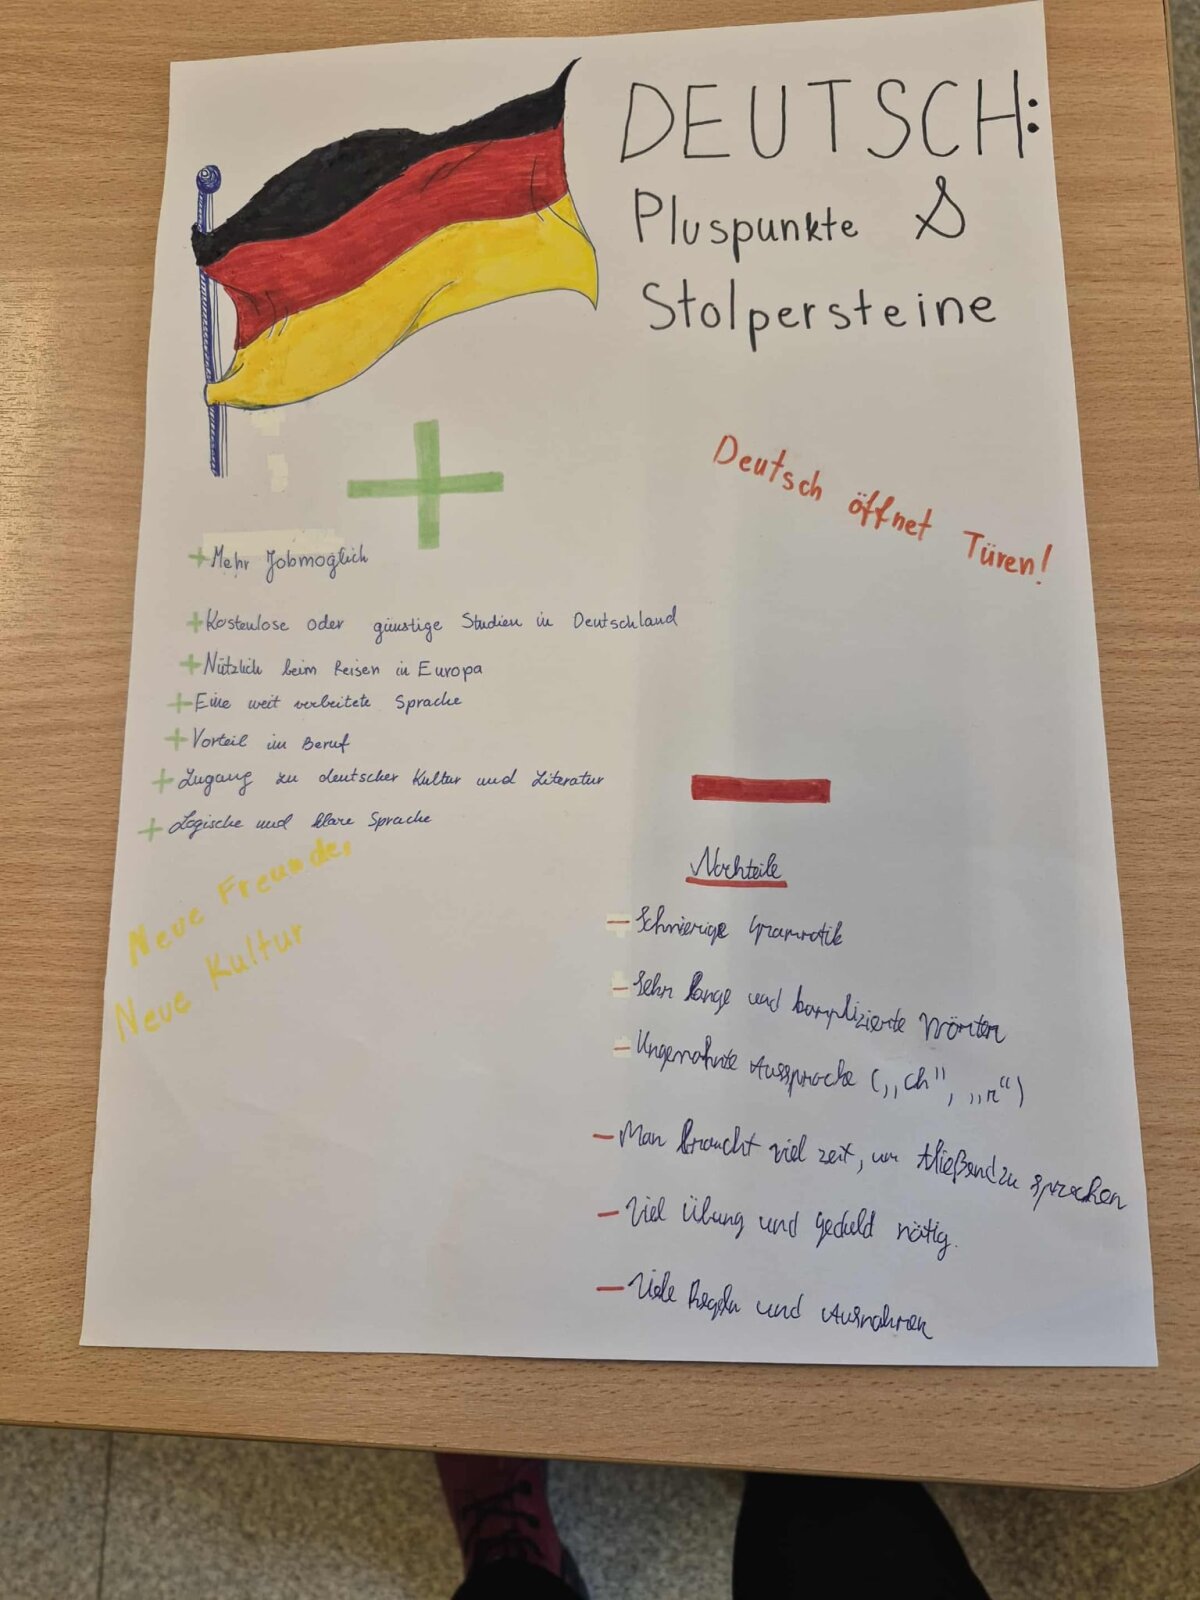 DEUTSCH:
Pluspunkte &
Stolpersteine
Deutsch öffnet Türen!
+ Mehr Jobmöglich
+ Kostenlose oder günstige Studien in Deutschland
+ Nützlich beim Reisen in Europa
+ Eine weit verbeitete Sprache
+ Vorteil im Beruf
+ Zugang zu deutscher Kultur und Literatur
+ Logische und klare Sprache
Neue Freunde,
Neue Kultur
Nachteile
- Schwierige Grammatik
- Sehr lange und komplizierte Wörter
- Ungewohnte Aussprache („ch", „r“)
- Man braucht viel zeit, um fließend zu sprechen
- Viel Übung und geduld nötig.
- Viele Regeln und Ausnahmen